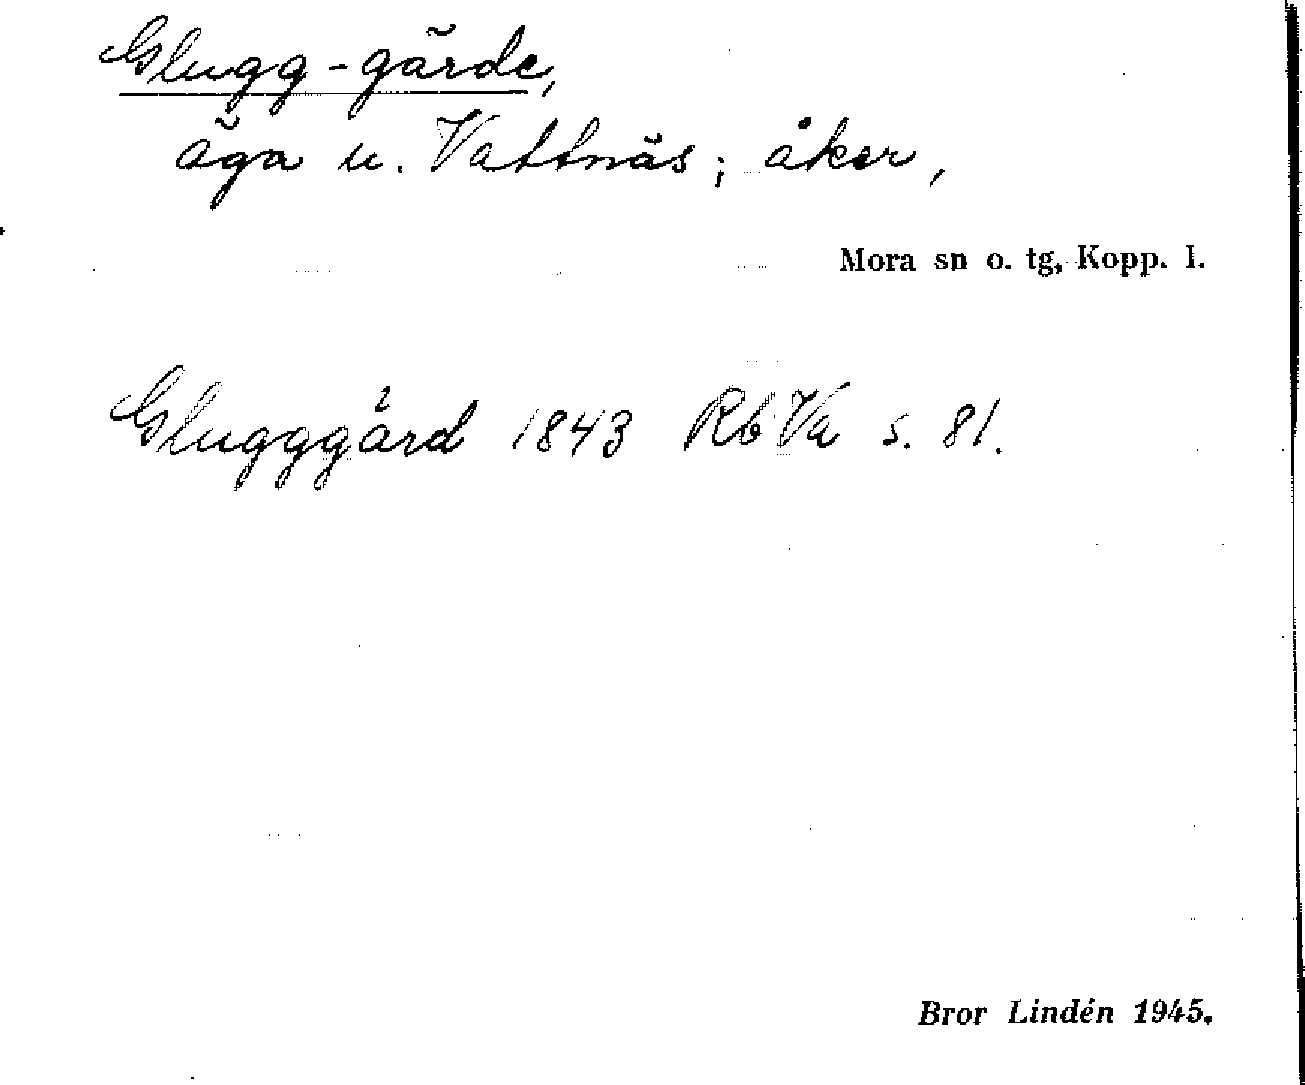 Glugg-gärde,
äga u. Vattnäs; åker,
Mora sn o. tg, Kopp. l.
Glugggård 1843 Rb Va s. 81.
Bror Lindén 1945.